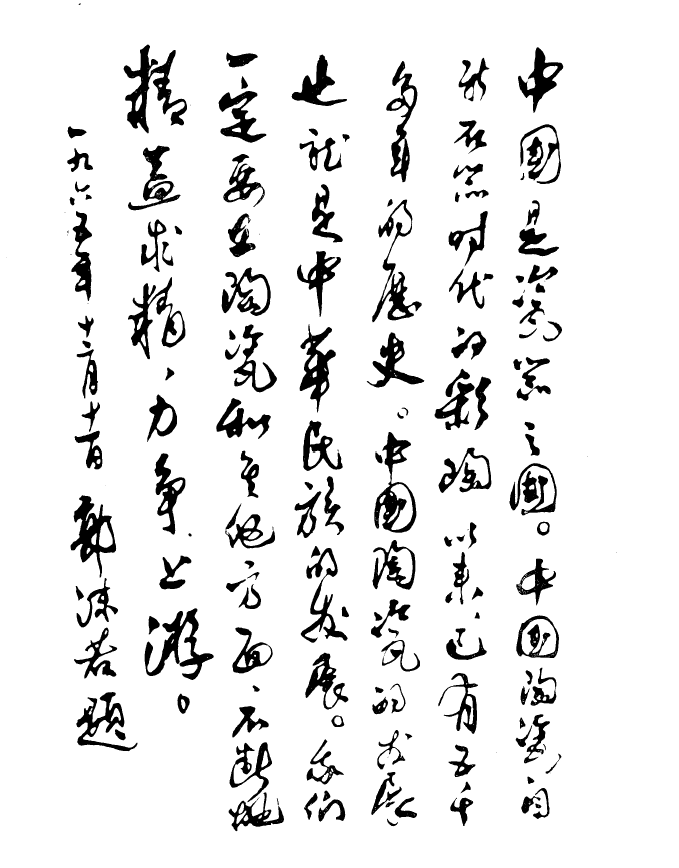 中國是瓷器之國。中国陶瓷自
新石器时代的彩陶以来、已有五千
多年的歷史。中國陶瓷的发展
也就是中華民族的发展。我们
一定要在陶瓷和其他方面、不断地
精益求精、力争上游。
一九六五年十二月十一日 郭沫若題